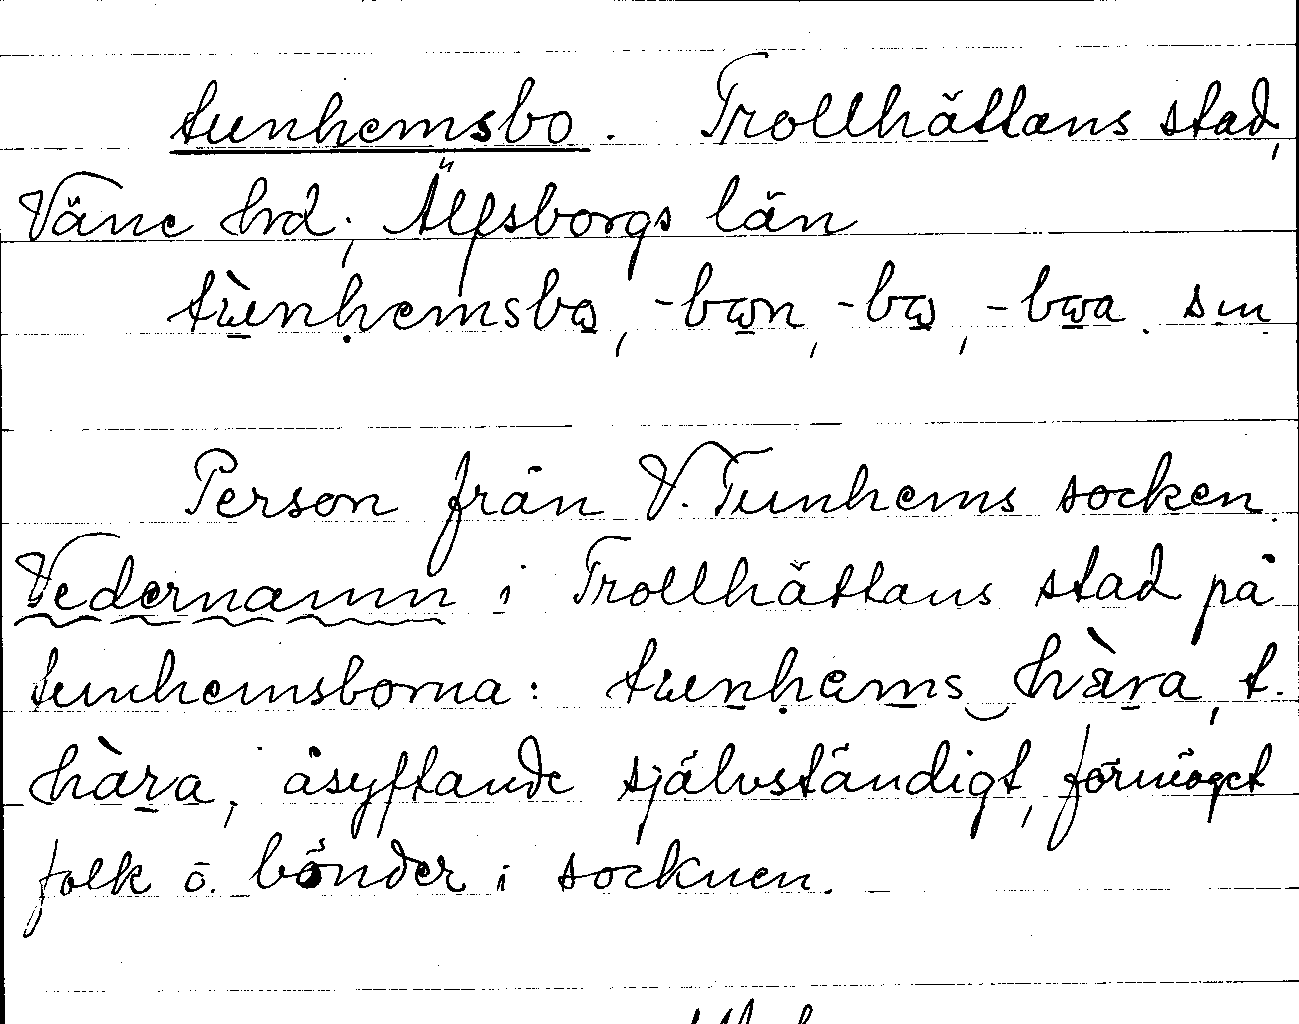 tunhemsbo. Trollhättans stad,
Väne hrd, Älfsborgs län
tùnhemsbo, -bon, -bo, -boa. sm
Person från V. Tunhems socken.
Vedernamn i Trollhättans stad på
tunhemsborna: tunhems hàra, t.
hàra, åsyftande självständigt, förmöget
folk o. bönder i socknen.